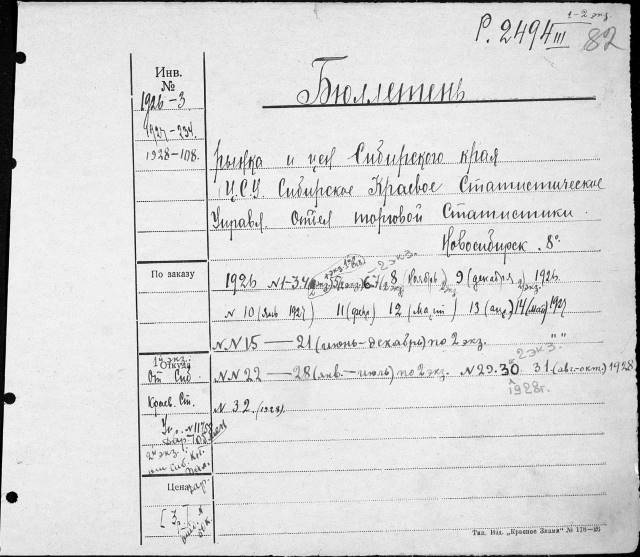 1-2 экз.
Р. 2494 III 82
Инв.
№
1926-3
1927-234.
1928-108.
Бюллетень
рынка и цен Сибирского края
(Ц.С.У. Сибирское Краевое Статистическое
Управл. Отдел торговой Статистики.
Новосибирск. 8°.
По заказу
1926 N 1-3.4 6-7 8 Ноябрь) 9 (декабря) 1926
N 10 (янв 1927) 11 (февр) 12 (март) 13 (апр) 14 (май) 1927
N.N 15 — 21 (июнь-декабрь) по 2 экз. " "
2 экз.
N.N 22 — 28 (янв.-июль) по 2 экз. N 29. 30. 31. (авг.-окт.) 1928
1928г.
N 32. (1928).
1й экз.:
Откуда
От Сиб.
Краев. Ст.
Уп. N 11758
2й экз.:
Цена
[3
Тип. Изд. „Красное Знамя" № 176—26